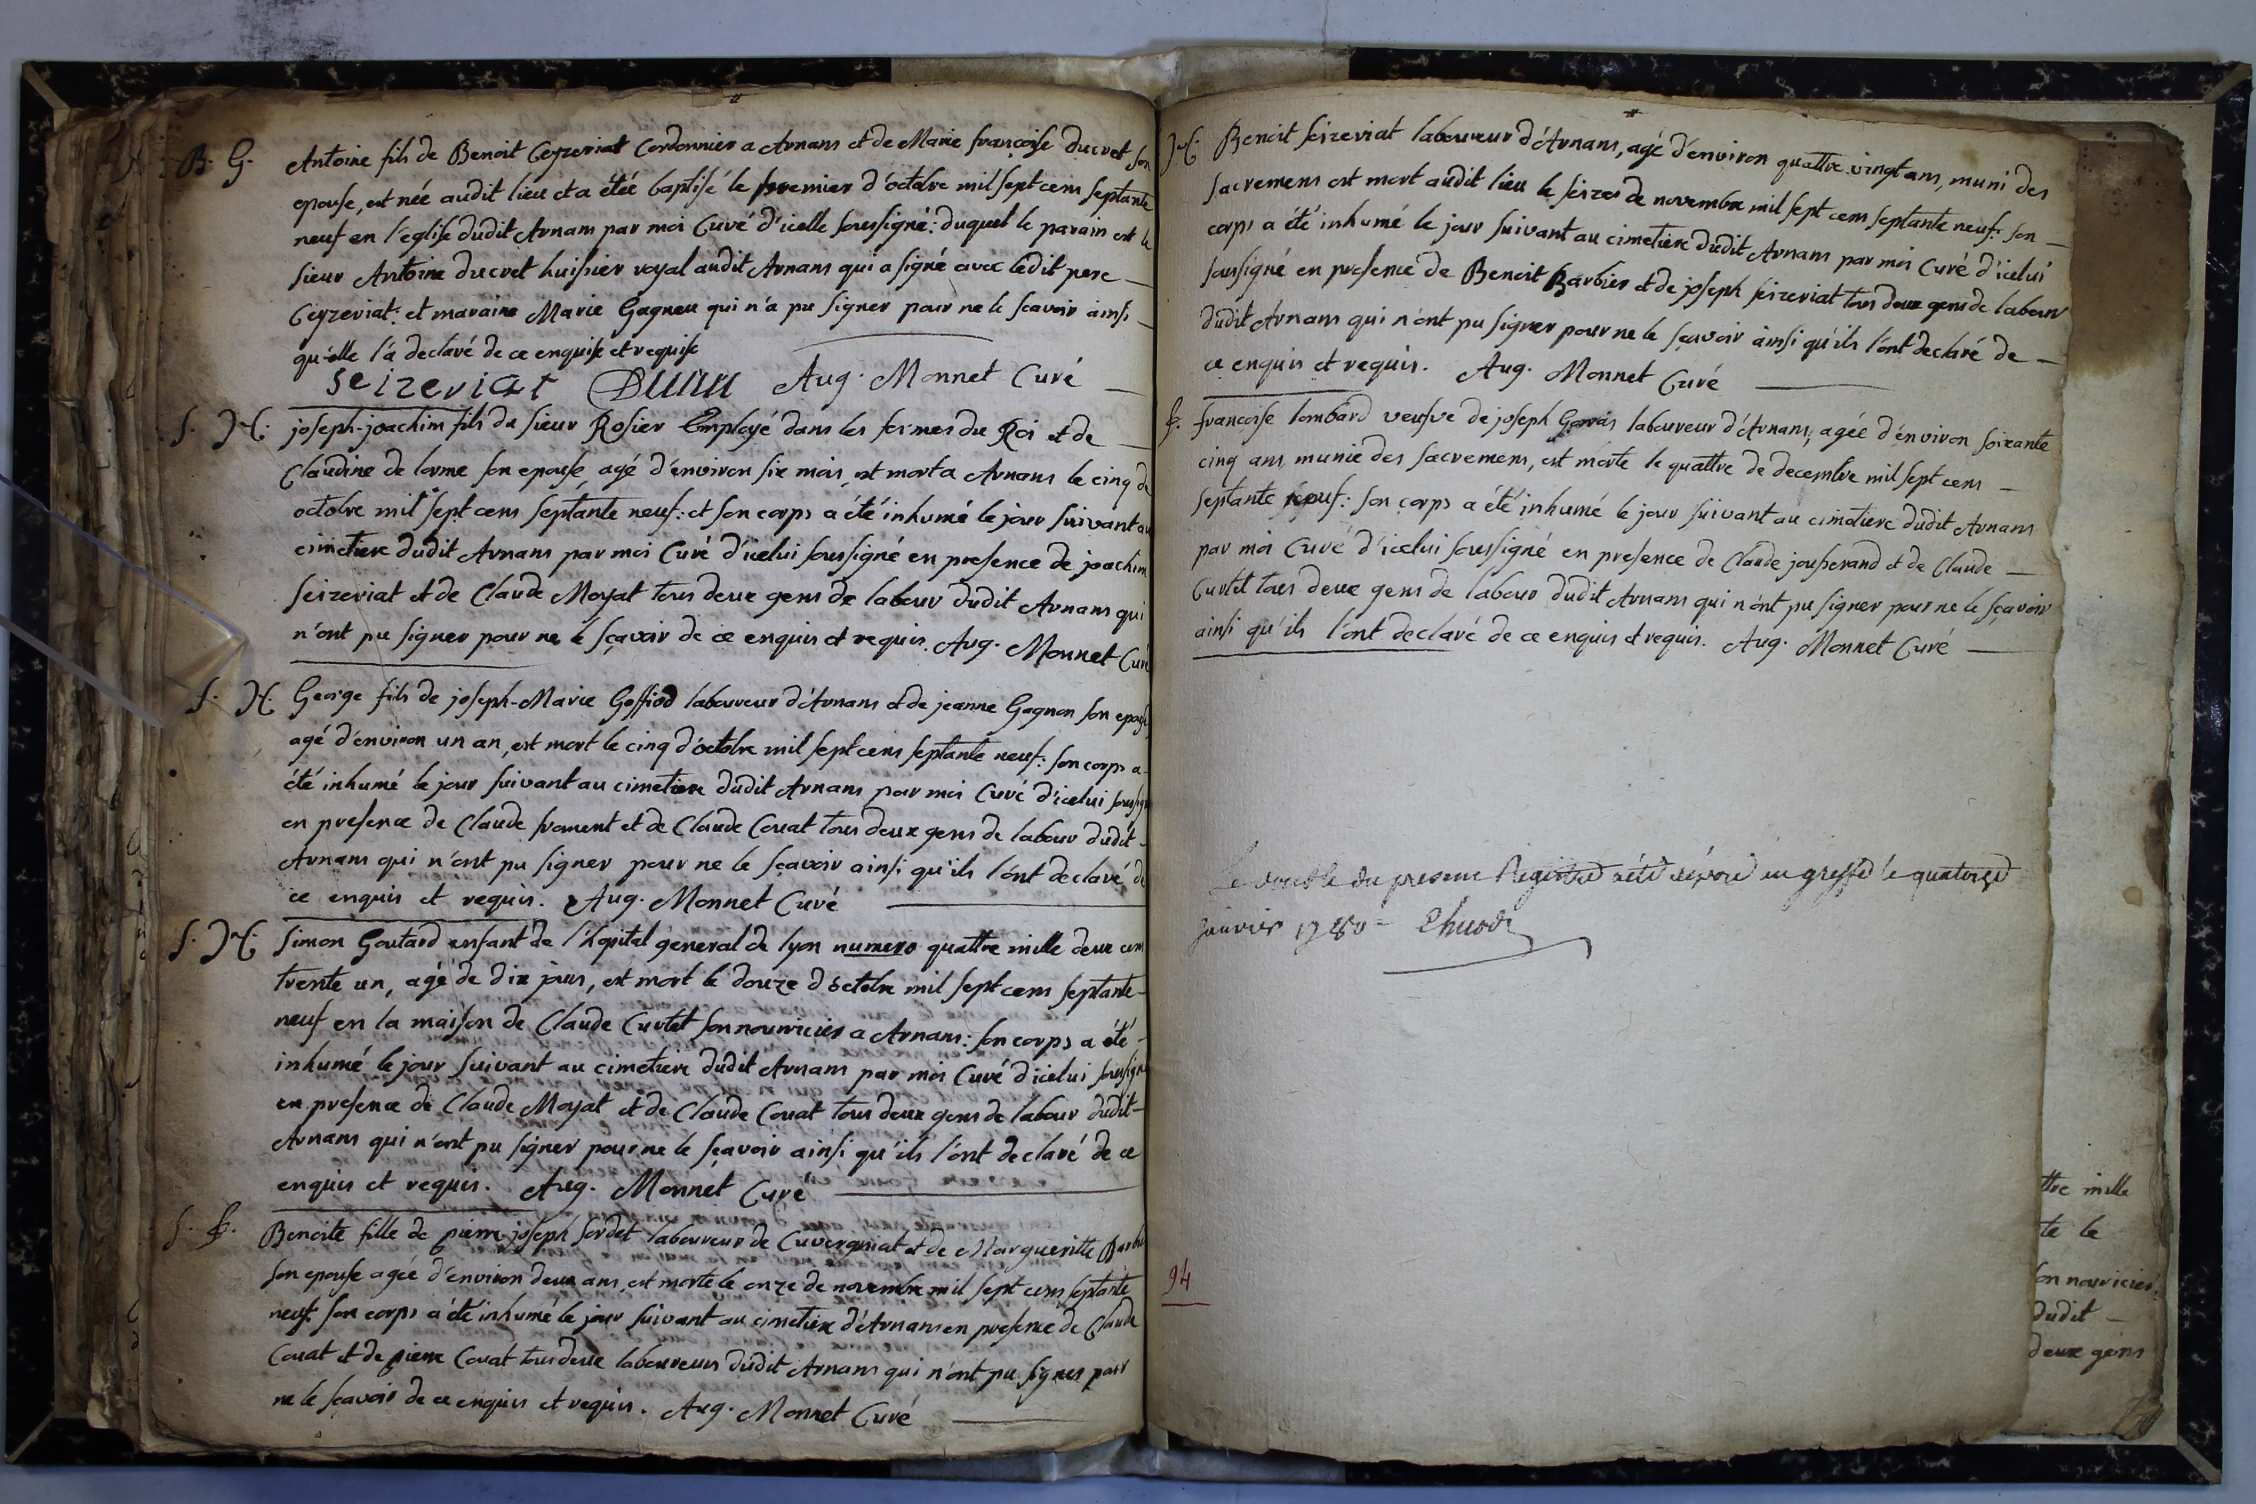 B. G. Antoine fils de Benoit Ceyzeriat Cordonnier a Arnans et de Marie françoise ducret son
epouse, est née audit lieu et a étée baptisé le premier d'octobre mil sept cens septante
neuf en l'eglise dudit Arnans par moi Curé d'icelle soussigné: duquel le parain est le
sieur Antoine ducret huissier royal audit Arnans qui a signé avec ledit pere —
Ceyzeriat: et maraine Marie Gagneu qui n'a pu signer pour ne le sçavoir ainsi —
qu'elle l'a declaré de ce enquise et requise
seizeriat Aug. Monnet Curé —
S. H. joseph-joachim fils du sieur Rosier Employé dans les fermes du Roi et de —
Claudine de lorme son epouse, agé d'environ six mois, est mort a Arnans le cinq de
octobre mil sept cens septante neuf: et son corps a été inhumé le jour suivant au
cimetiere dudit Arnans par moi Curé d'icelui soussigné en presence de joachim
seizeriat et de Claude Moyat tous deux gens de labour dudit Arnans qui
n'ont pu signer pour ne le sçavoir de ce enquis et requis. Aug. Monnet Curé
S. H. George fils de joseph-Marie Goffiod laboureur d'Arnans et de jeanne Gagnon son epouse
agé d'environ un an, est mort le cinq d'octobre mil sept cens septante neuf: son corps a
été inhumé le jour suivant au cimetiere dudit Arnans par moi Curé d'icelui soussigné
en presence de Claude froment et de Claude Couat tous deux gens de labour dudit —
Arnans qui n'ont pu signer pour ne le sçavoir ainsi qu'ils l'ont declaré de
ce enquis et requis. Aug. Monnet Curé —
S. H. Simon Goutard enfant de l'hopital general de lyon numero quattre mille deux cens
trente un, agé de dix jours, est mort le douze d'octobre mil sept cens septante —
neuf en la maison de Claude Curtet son nourricier a Arnans: son corps a été —
inhumé le jour suivant au cimetiere dudit Arnans par moi Curé d'icelui soussigné
en presence de Claude Moyat et de Claude Couat tous deux gens de labour dudit —
Arnans qui n'ont pu signer pour ne le sçavoir ainsi qu'ils l'ont declaré de ce
enquis et requis. Aug. Monnet Curé —
S. f. Benoite fille de pierre-joseph Sordet laboureur de Cuvergniat et de Margueritte
son epouse agée d'environ deux ans, est morte le onze de novembre mil sept cens septante
neuf: son corps a été inhumé le jour suivant au cimetiere d'Arnans en presence de Claude
Couat et de pierre Couat tous deux laboureurs dudit Arnans qui n'ont pu signer pour
ne le sçavoir de ce enquis et requis. Aug. Monnet Curé —
H. Benoit seizeriat laboureur d'Arnans, agé d'environ quattre vingt ans, muni des
sacremens est mort audit lieu le seizes de novembre mil sept cens septante neuf: son —
corps a été inhumé le jour suivant au cimetiere dudit Arnans par moi Curé d'icelui
soussigné en presence de Benoit Barbier et de joseph seizeriat tous deux gens de labour
dudit Arnans qui n'ont pu signer pour ne le sçavoir ainsi qu'ils l'ont declaré de —
ce enquis et requis. Aug. Monnet Curé —
f. francoise lombard veufve de joseph laboureur d'Arnans, agée d'environ soixante
cinq ans, munie des sacremens, est morte le quattre de decembre mil sept cens —
septante neuf: son corps a été inhumé le jour suivant au cimetiere dudit Arnans
par moi Curé d'icelui soussigné en presence de Claude jousserand et de Claude —
Curtet tous deux gens de labour dudit Arnans qui n'ont pu signer pour ne le sçavoir
ainsi qu'ils l'ont declaré de ce enquis et requis. Aug. Monnet Curé —
Le double du present Registre a été déposé au greffe le quatorze
janvier 1780 —
94
ttre mille
te le
son nouricier:
dudit —
deux gens